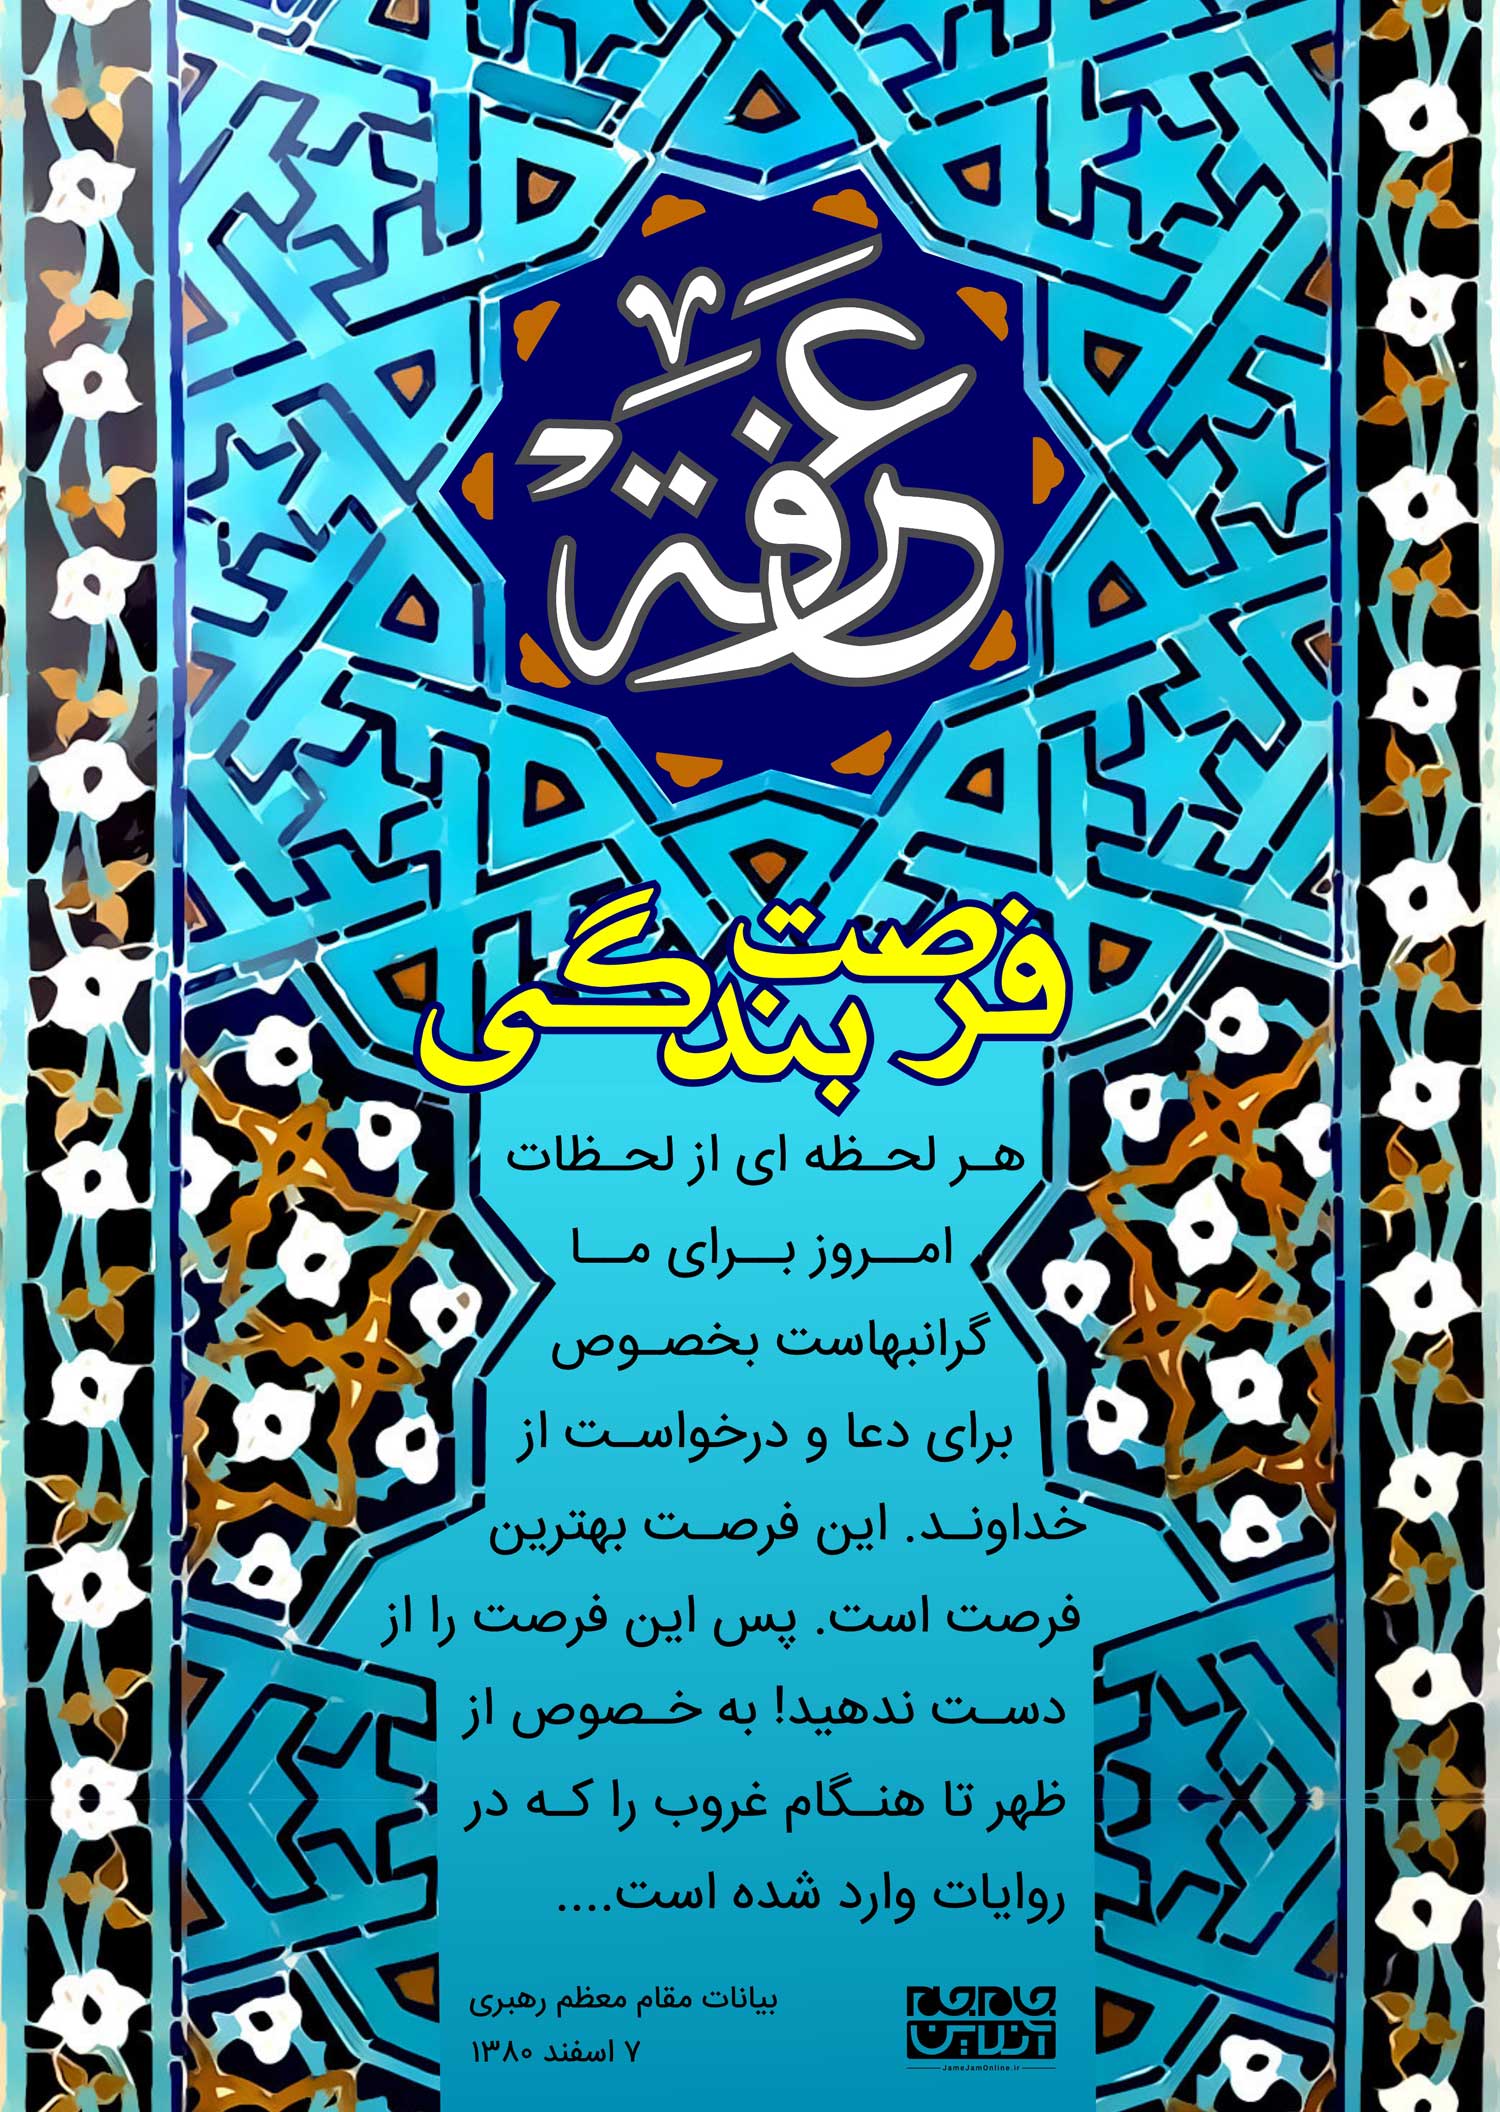 عرفة
فرصت بندگی
هر لحظه ای از لحظات
امروز برای ما
گرانبهاست بخصوص
برای دعا و درخواست از
خداوند. این فرصت بهترین
فرصت است. پس این فرصت را از
دست ندهید! به خصوص از
ظهر تا هنگام غروب را که در
روایات وارد شده است....
بیانات مقام معظم رهبری
۷ اسفند ۱۳۸۰
جام جم
آنلاین
JameJamOnline.ir